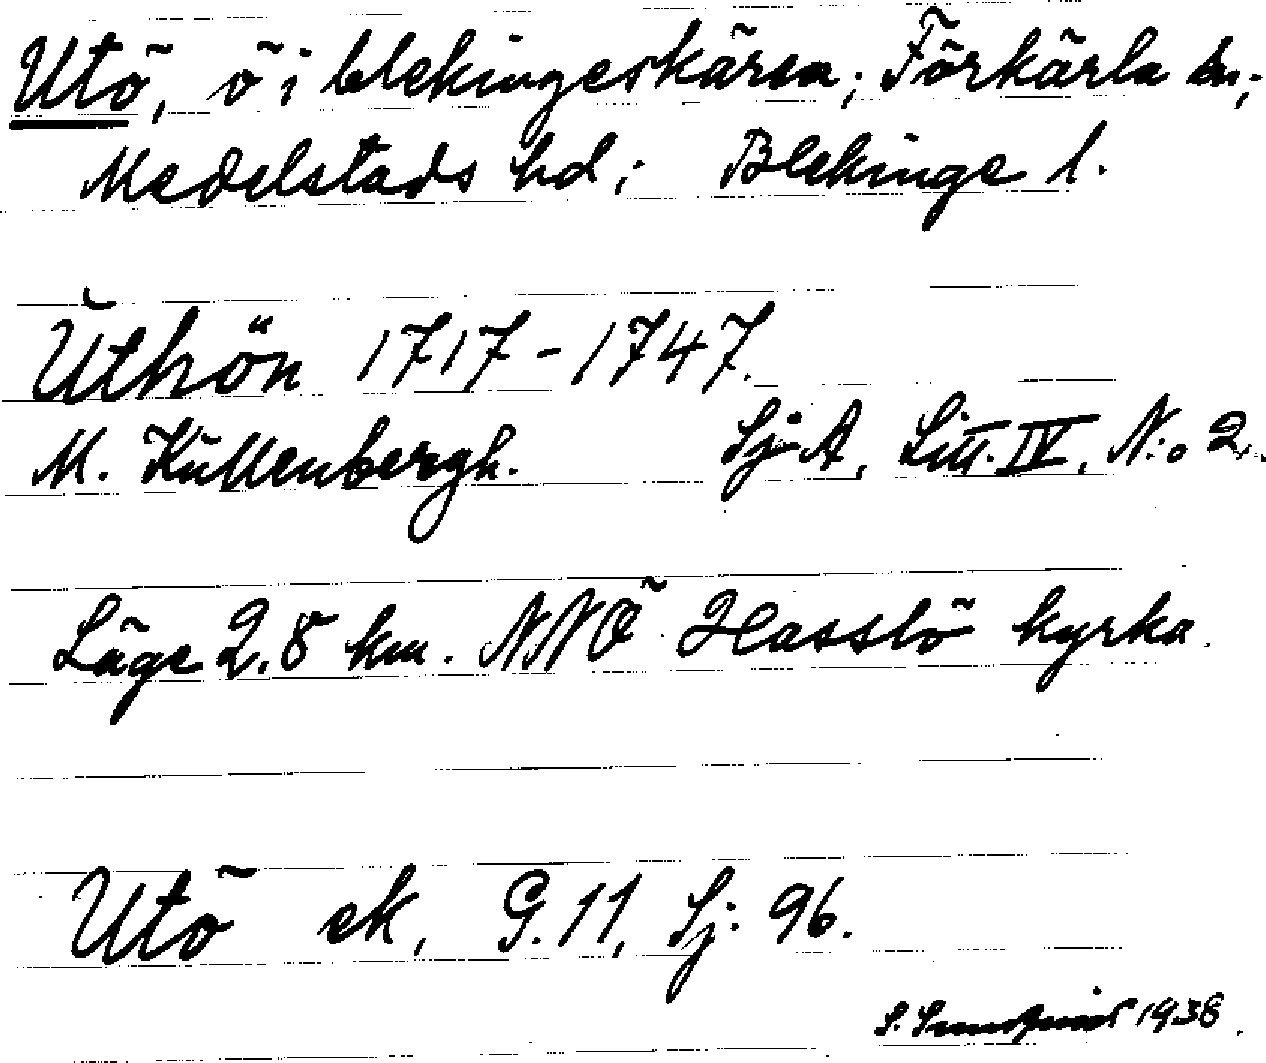 Utö, ö i blekingeskären; Förkärla sn;
Medelstads hd; Blekinge l.
Ŭthön 1717-1747.
M. Küllenbergh. Sj:A, Litt. IV, N:o 2.
Läge 2.8 km. NNÖ Hasslö kyrka.
Utö ek, G.11, Sj: 96.
S. 1938.